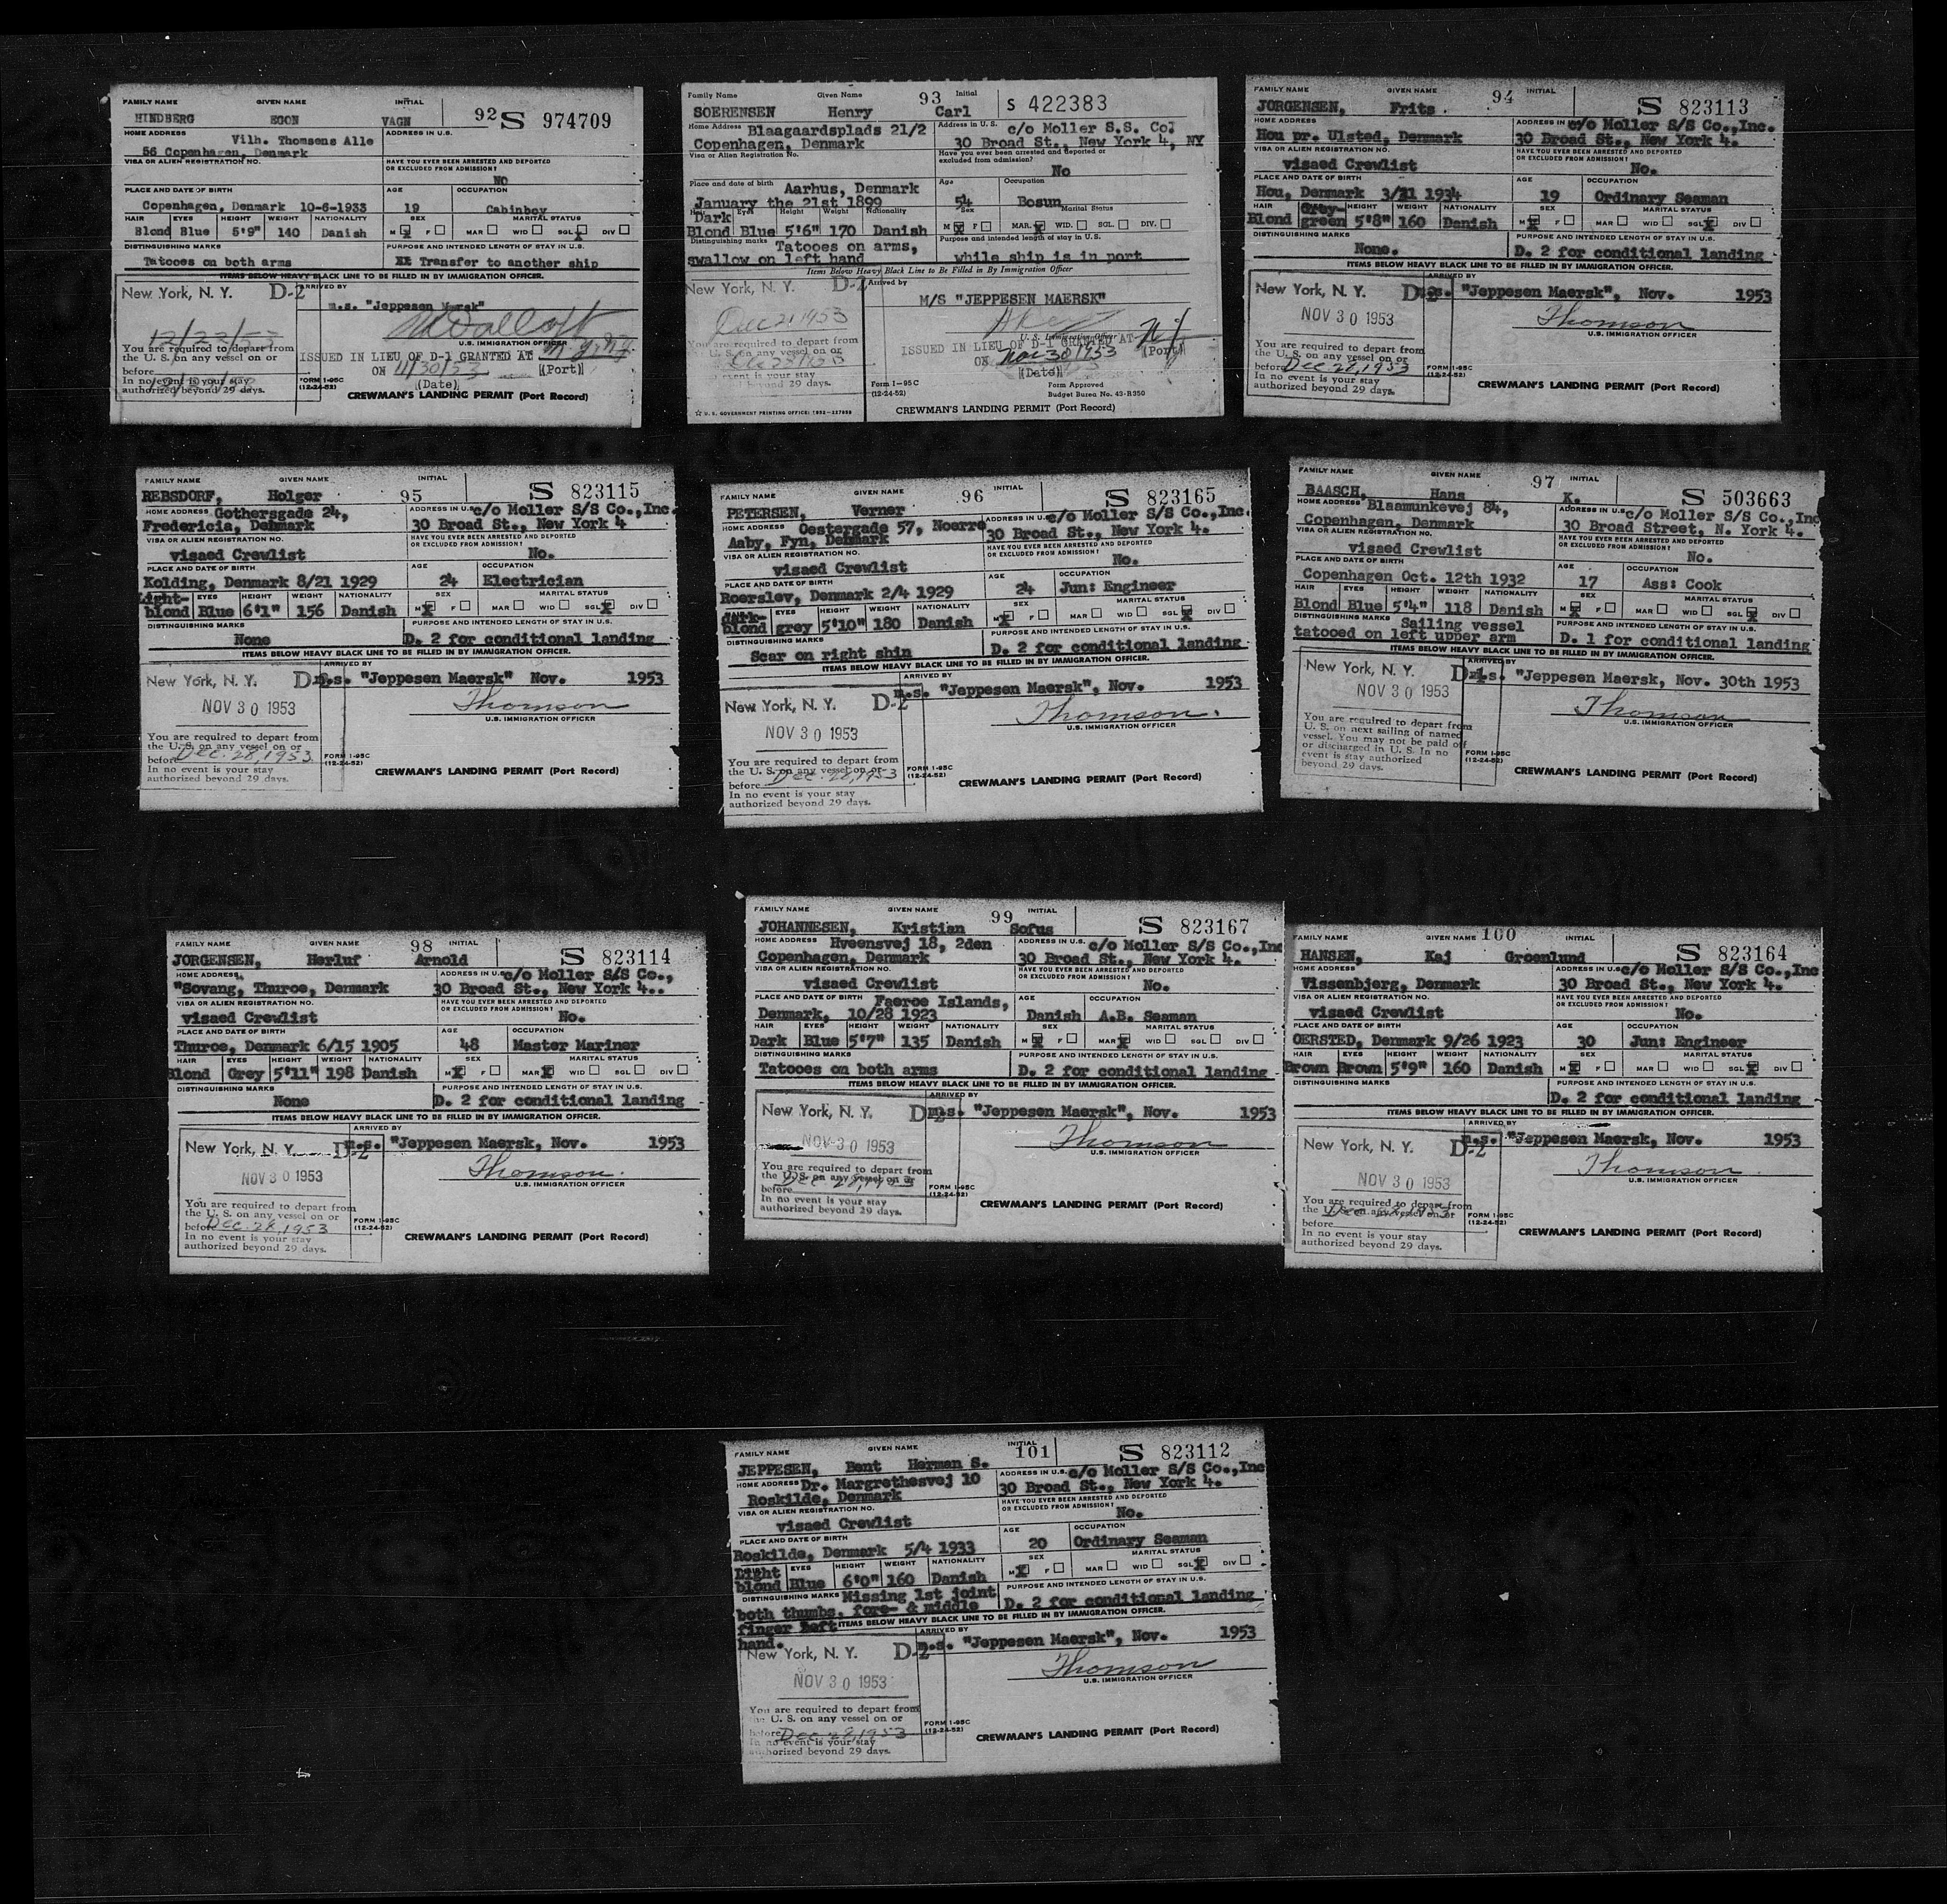 FAMILY NAME GIVEN NAME INITIAL
HINDBERG EGON VAGN 92 S 974709
HOME ADDRESS ADDRESS IN U.S.
Vilh. Thomsens Alle
56 Copenhagen, Denmark
VISA OR ALIEN REGISTRATION NO. HAVE YOU EVER BEEN ARRESTED AND DEPORTED
OR EXCLUDED FROM ADMISSION?
NO
PLACE AND DATE OF BIRTH AGE OCCUPATION
Copenhagen, Denmark 10-6-1933 19 Cabinboy
HAIR EYES HEIGHT WEIGHT NATIONALITY SEX MARITAL STATUS
Blond Blue 5'9" 140 Danish M X F MAR WID SGL X DIV
DISTINGUISHING MARKS PURPOSE AND INTENDED LENGTH OF STAY IN U.S.
Tatooes on both arms Transfer to another ship
ITEMS BELOW HEAVY BLACK LINE TO BE FILLED IN BY IMMIGRATION OFFICER.
New York, N. Y. D-2 ARRIVED BY
m.s. "Jeppesen Mærsk"
12/22/53
U.S. IMMIGRATION OFFICER
You are required to depart from
the U. S. on any vessel on or
before
In no event is your stay
authorized beyond 29 days.
ISSUED IN LIEU OF D-1 GRANTED AT N.Y. N.Y. (Port)
ON 11/30/53 (Date)
FORM I-95C
(12-24-52)
CREWMAN'S LANDING PERMIT (Port Record)
Family Name Given Name Initial
SOERENSEN Henry 93 Carl S 422383
Home Address Blaagaardsplads 21/2 Address in U.S. c/o Moller S.S. Co.
Copenhagen, Denmark 30 Broad St., New York 4, NY
Visa or Alien Registration No. Have you ever been arrested and deported or
excluded from admission?
No
Place and date of birth Aarhus, Denmark Age Occupation
January the 21st 1899 54 Bosun
Hair Eyes Height Weight Nationality Sex Marital Status
Dark
Blond Blue 5'6" 170 Danish M X F MAR. X WID. SGL. DIV.
Distinguishing marks Tatooes on arms, Purpose and intended length of stay in U.S.
swallow on left hand while ship is in port
Items Below Heavy Black Line to Be Filled in By Immigration Officer
New York, N. Y. D-2 Arrived by
M/S "JEPPESEN MAERSK"
Dec 21 1953
U. S. Immigration Officer
You are required to depart from
the U. S. on any vessel on or
Dec 28 1953
event is your stay
beyond 29 days.
ISSUED IN LIEU OF D-1 GRANTED AT N.Y. (Port)
ON Nov 30 1953 (Date)
Form I-95C Form Approved
(12-24-52) Budget Bureau No. 43-R350
☆ U.S. GOVERNMENT PRINTING OFFICE: 1952
CREWMAN'S LANDING PERMIT (Port Record)
FAMILY NAME GIVEN NAME INITIAL
JORGENSEN, Frits 94 S 823113
HOME ADDRESS ADDRESS IN U.S. c/o Moller S/S Co., Inc.
Hou pr. Ulsted, Denmark 30 Broad St., New York 4.
VISA OR ALIEN REGISTRATION NO. HAVE YOU EVER BEEN ARRESTED AND DEPORTED
OR EXCLUDED FROM ADMISSION?
visaed Crewlist No.
PLACE AND DATE OF BIRTH AGE OCCUPATION
Hou, Denmark 3/21 1934 19 Ordinary Seaman
HAIR EYES HEIGHT WEIGHT NATIONALITY SEX MARITAL STATUS
Blond Grey-green 5'8" 160 Danish M X F MAR WID SGL X DIV
DISTINGUISHING MARKS PURPOSE AND INTENDED LENGTH OF STAY IN U.S.
None. D. 2 for conditional landing
ITEMS BELOW HEAVY BLACK LINE TO BE FILLED IN BY IMMIGRATION OFFICER.
ARRIVED BY
New York, N. Y. D-2 m.s. "Jeppesen Maersk", Nov. 1953
NOV 30 1953
Thomson
U.S. IMMIGRATION OFFICER
You are required to depart from
the U. S. on any vessel on or
before Dec 28, 1953
In no event is your stay
authorized beyond 29 days.
FORM I-95C
(12-24-52)
CREWMAN'S LANDING PERMIT (Port Record)
FAMILY NAME GIVEN NAME INITIAL
REBSDORF, Holger 95 S 823115
HOME ADDRESS Gothersgade 24, ADDRESS IN U.S. c/o Moller S/S Co., Inc.
Fredericia, Denmark 30 Broad St., New York 4
VISA OR ALIEN REGISTRATION NO. HAVE YOU EVER BEEN ARRESTED AND DEPORTED
OR EXCLUDED FROM ADMISSION?
visaed Crewlist No.
PLACE AND DATE OF BIRTH AGE OCCUPATION
Kolding, Denmark 8/21 1929 24 Electrician
HAIR EYES HEIGHT WEIGHT NATIONALITY SEX MARITAL STATUS
Light-blond Blue 6'1" 156 Danish M X F MAR WID SGL X DIV
DISTINGUISHING MARKS PURPOSE AND INTENDED LENGTH OF STAY IN U.S.
None D. 2 for conditional landing
ITEMS BELOW HEAVY BLACK LINE TO BE FILLED IN BY IMMIGRATION OFFICER.
ARRIVED BY
New York, N. Y. D-2 m.s. "Jeppesen Maersk" Nov. 1953
NOV 30 1953
Thomson
U.S. IMMIGRATION OFFICER
You are required to depart from
the U. S. on any vessel on or
before Dec. 28, 1953.
In no event is your stay
authorized beyond 29 days.
FORM I-95C
(12-24-52)
CREWMAN'S LANDING PERMIT (Port Record)
FAMILY NAME GIVEN NAME INITIAL
PETERSEN, Verner 96 S 823165
HOME ADDRESS Oestergade 57, Noerre ADDRESS IN U.S. c/o Moller S/S Co., Inc.
Aaby, Fyn, Denmark 30 Broad St., New York 4.
VISA OR ALIEN REGISTRATION NO. HAVE YOU EVER BEEN ARRESTED AND DEPORTED
OR EXCLUDED FROM ADMISSION?
visaed Crewlist No.
PLACE AND DATE OF BIRTH AGE OCCUPATION
Roerslev, Denmark 2/4 1929 24 Jun: Engineer
HAIR EYES HEIGHT WEIGHT NATIONALITY SEX MARITAL STATUS
dark-blond grey 5'10" 180 Danish M X F MAR WID SGL X DIV
DISTINGUISHING MARKS PURPOSE AND INTENDED LENGTH OF STAY IN U.S.
Scar on right shin D. 2 for conditional landing
ITEMS BELOW HEAVY BLACK LINE TO BE FILLED IN BY IMMIGRATION OFFICER.
ARRIVED BY
New York, N. Y. D-2 m.s. "Jeppesen Maersk", Nov. 1953
NOV 30 1953
Thomson.
U.S. IMMIGRATION OFFICER
You are required to depart from
the U. S. on any vessel on or
before Dec 28, 1953
In no event is your stay
authorized beyond 29 days.
FORM I-95C
(12-24-52)
CREWMAN'S LANDING PERMIT (Port Record)
FAMILY NAME GIVEN NAME INITIAL
BAASCH, Hans 97 K. S 503663
HOME ADDRESS Blaamunkevej 84, ADDRESS IN U.S. c/o Moller S/S Co., Inc
Copenhagen, Denmark 30 Broad Street, N. York 4.
VISA OR ALIEN REGISTRATION NO. HAVE YOU EVER BEEN ARRESTED AND DEPORTED
OR EXCLUDED FROM ADMISSION?
visaed Crewlist No.
PLACE AND DATE OF BIRTH AGE OCCUPATION
Copenhagen Oct. 12th 1932 17 Ass: Cook
HAIR EYES HEIGHT WEIGHT NATIONALITY SEX MARITAL STATUS
Blond Blue 5'4" 118 Danish M X F MAR WID SGL X DIV
DISTINGUISHING MARKS Sailing vessel PURPOSE AND INTENDED LENGTH OF STAY IN U.S.
tatooed on left upper arm D. 1 for conditional landing
ITEMS BELOW HEAVY BLACK LINE TO BE FILLED IN BY IMMIGRATION OFFICER.
ARRIVED BY
New York, N. Y. D-1 m.s. "Jeppesen Maersk, Nov. 30th 1953
NOV 30 1953
Thomson
U.S. IMMIGRATION OFFICER
You are required to depart from
U. S. on next sailing of named
vessel. You may not be paid off
or discharged in U. S. In no
event is stay authorized
beyond 29 days.
FORM I-95C
(12-24-52)
CREWMAN'S LANDING PERMIT (Port Record)
FAMILY NAME GIVEN NAME INITIAL
JORGENSEN, Herluf 98 Arnold S 823114
HOME ADDRESS ADDRESS IN U.S. c/o Moller S/S Co.,
"Sovang, Thuroe, Denmark 30 Broad St., New York 4..
VISA OR ALIEN REGISTRATION NO. HAVE YOU EVER BEEN ARRESTED AND DEPORTED
OR EXCLUDED FROM ADMISSION?
visaed Crewlist No.
PLACE AND DATE OF BIRTH AGE OCCUPATION
Thuroe, Denmark 6/15 1905 48 Master Mariner
HAIR EYES HEIGHT WEIGHT NATIONALITY SEX MARITAL STATUS
Blond Grey 5'11" 198 Danish M X F MAR X WID SGL DIV
DISTINGUISHING MARKS PURPOSE AND INTENDED LENGTH OF STAY IN U.S.
None D. 2 for conditional landing
ITEMS BELOW HEAVY BLACK LINE TO BE FILLED IN BY IMMIGRATION OFFICER.
ARRIVED BY
New York, N. Y. D-2 m.s. "Jeppesen Maersk, Nov. 1953
NOV 30 1953
Thomson.
U.S. IMMIGRATION OFFICER
You are required to depart from
the U. S. on any vessel on or
before Dec. 28, 1953
In no event is your stay
authorized beyond 29 days.
FORM I-95C
(12-24-52)
CREWMAN'S LANDING PERMIT (Port Record)
FAMILY NAME GIVEN NAME INITIAL
JOHANNESEN, Kristian 99 Sofus S 823167
HOME ADDRESS Hveensvej 18, 2den ADDRESS IN U.S. c/o Moller S/S Co., Inc
Copenhagen, Denmark 30 Broad St., New York 4.
VISA OR ALIEN REGISTRATION NO. HAVE YOU EVER BEEN ARRESTED AND DEPORTED
OR EXCLUDED FROM ADMISSION?
visaed Crewlist No.
PLACE AND DATE OF BIRTH Faeroe Islands, AGE OCCUPATION
Denmark, 10/28 1923 Danish A.B. Seaman
HAIR EYES HEIGHT WEIGHT NATIONALITY SEX MARITAL STATUS
Dark Blue 5'7" 135 Danish M X F MAR X WID SGL DIV
DISTINGUISHING MARKS PURPOSE AND INTENDED LENGTH OF STAY IN U.S.
Tatooes on both arms D. 2 for conditional landing
ITEMS BELOW HEAVY BLACK LINE TO BE FILLED IN BY IMMIGRATION OFFICER.
ARRIVED BY
New York, N. Y. D-2 m.s. "Jeppesen Maersk", Nov. 1953
NOV 30 1953
Thomson
U.S. IMMIGRATION OFFICER
You are required to depart from
the U. S. on any vessel on or
before Dec 28, 1953
In no event is your stay
authorized beyond 29 days.
FORM I-95C
(12-24-52)
CREWMAN'S LANDING PERMIT (Port Record)
FAMILY NAME GIVEN NAME 100 INITIAL
HANSEN, Kaj Groenlund S 823164
HOME ADDRESS ADDRESS IN U.S. c/o Moller S/S Co., Inc
Vissenbjerg, Denmark 30 Broad St., New York 4.
VISA OR ALIEN REGISTRATION NO. HAVE YOU EVER BEEN ARRESTED AND DEPORTED
OR EXCLUDED FROM ADMISSION?
visaed Crewlist No.
PLACE AND DATE OF BIRTH AGE OCCUPATION
OERSTED, Denmark 9/26 1923 30 Jun: Engineer
HAIR EYES HEIGHT WEIGHT NATIONALITY SEX MARITAL STATUS
Brown Brown 5'9" 160 Danish M X F MAR WID SGL X DIV
DISTINGUISHING MARKS PURPOSE AND INTENDED LENGTH OF STAY IN U.S.
D. 2 for conditional landing
ITEMS BELOW HEAVY BLACK LINE TO BE FILLED IN BY IMMIGRATION OFFICER.
ARRIVED BY
New York, N. Y. D-2 m.s. "Jeppesen Maersk, Nov. 1953
NOV 30 1953
Thomson
U.S. IMMIGRATION OFFICER
You are required to depart from
the U. S. on any vessel on or
before
In no event is your stay
authorized beyond 29 days.
FORM I-95C
(12-24-52)
CREWMAN'S LANDING PERMIT (Port Record)
FAMILY NAME GIVEN NAME INITIAL
JEPPESEN, Bent Herman S. 101 S 823112
HOME ADDRESS Dr. Margrethesvej 10 ADDRESS IN U.S. c/o Moller S/S Co., Inc
Roskilde, Denmark 30 Broad St., New York 4.
VISA OR ALIEN REGISTRATION NO. HAVE YOU EVER BEEN ARRESTED AND DEPORTED
OR EXCLUDED FROM ADMISSION?
visaed Crewlist No.
PLACE AND DATE OF BIRTH AGE OCCUPATION
Roskilde, Denmark 5/4 1933 20 Ordinary Seaman
EYES HEIGHT WEIGHT NATIONALITY SEX MARITAL STATUS
Light blond Blue 6'0" 160 Danish M X F MAR WID SGL X DIV
DISTINGUISHING MARKS Missing 1st joint PURPOSE AND INTENDED LENGTH OF STAY IN U.S.
both thumbs, fore- & middle D. 2 for conditional landing
finger left ITEMS BELOW HEAVY BLACK LINE TO BE FILLED IN BY IMMIGRATION OFFICER.
hand. ARRIVED BY
New York, N. Y. D-2 m.s. "Jeppesen Maersk", Nov. 1953
NOV 30 1953
Thomson
U.S. IMMIGRATION OFFICER
You are required to depart from
the U. S. on any vessel on or
before Dec 28, 1953
In no event is your stay
authorized beyond 29 days.
FORM I-95C
(12-24-52)
CREWMAN'S LANDING PERMIT (Port Record)